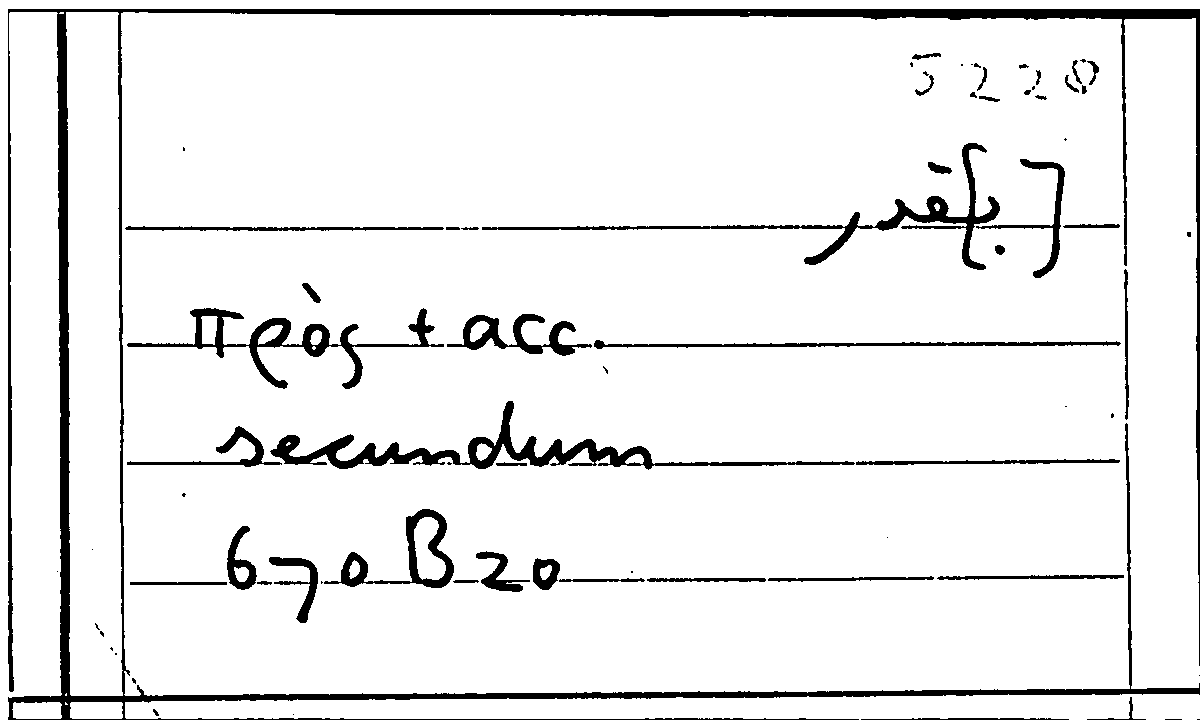 5228
[ب]قدر
πρὸς + acc.
secundum
670 B 20